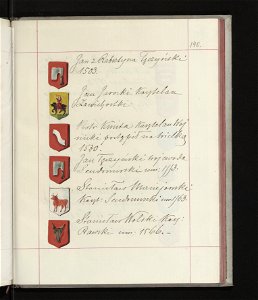 190.
Jan z Rabsztyna Tęczyński
1503.
Jan Jarocki Kasztelan
Zawichostski
Piotr Kmita Kasztelan Woj
nicki postąpił na wielką
1530.
Jan Tęczyński wojewoda
Sendomirski um. 1553.
Stanisław Maciejowski
Kaszt. Sendomirski um. 1563.
Stanisław Wolski Kasz.
Rawski um. 1566.-